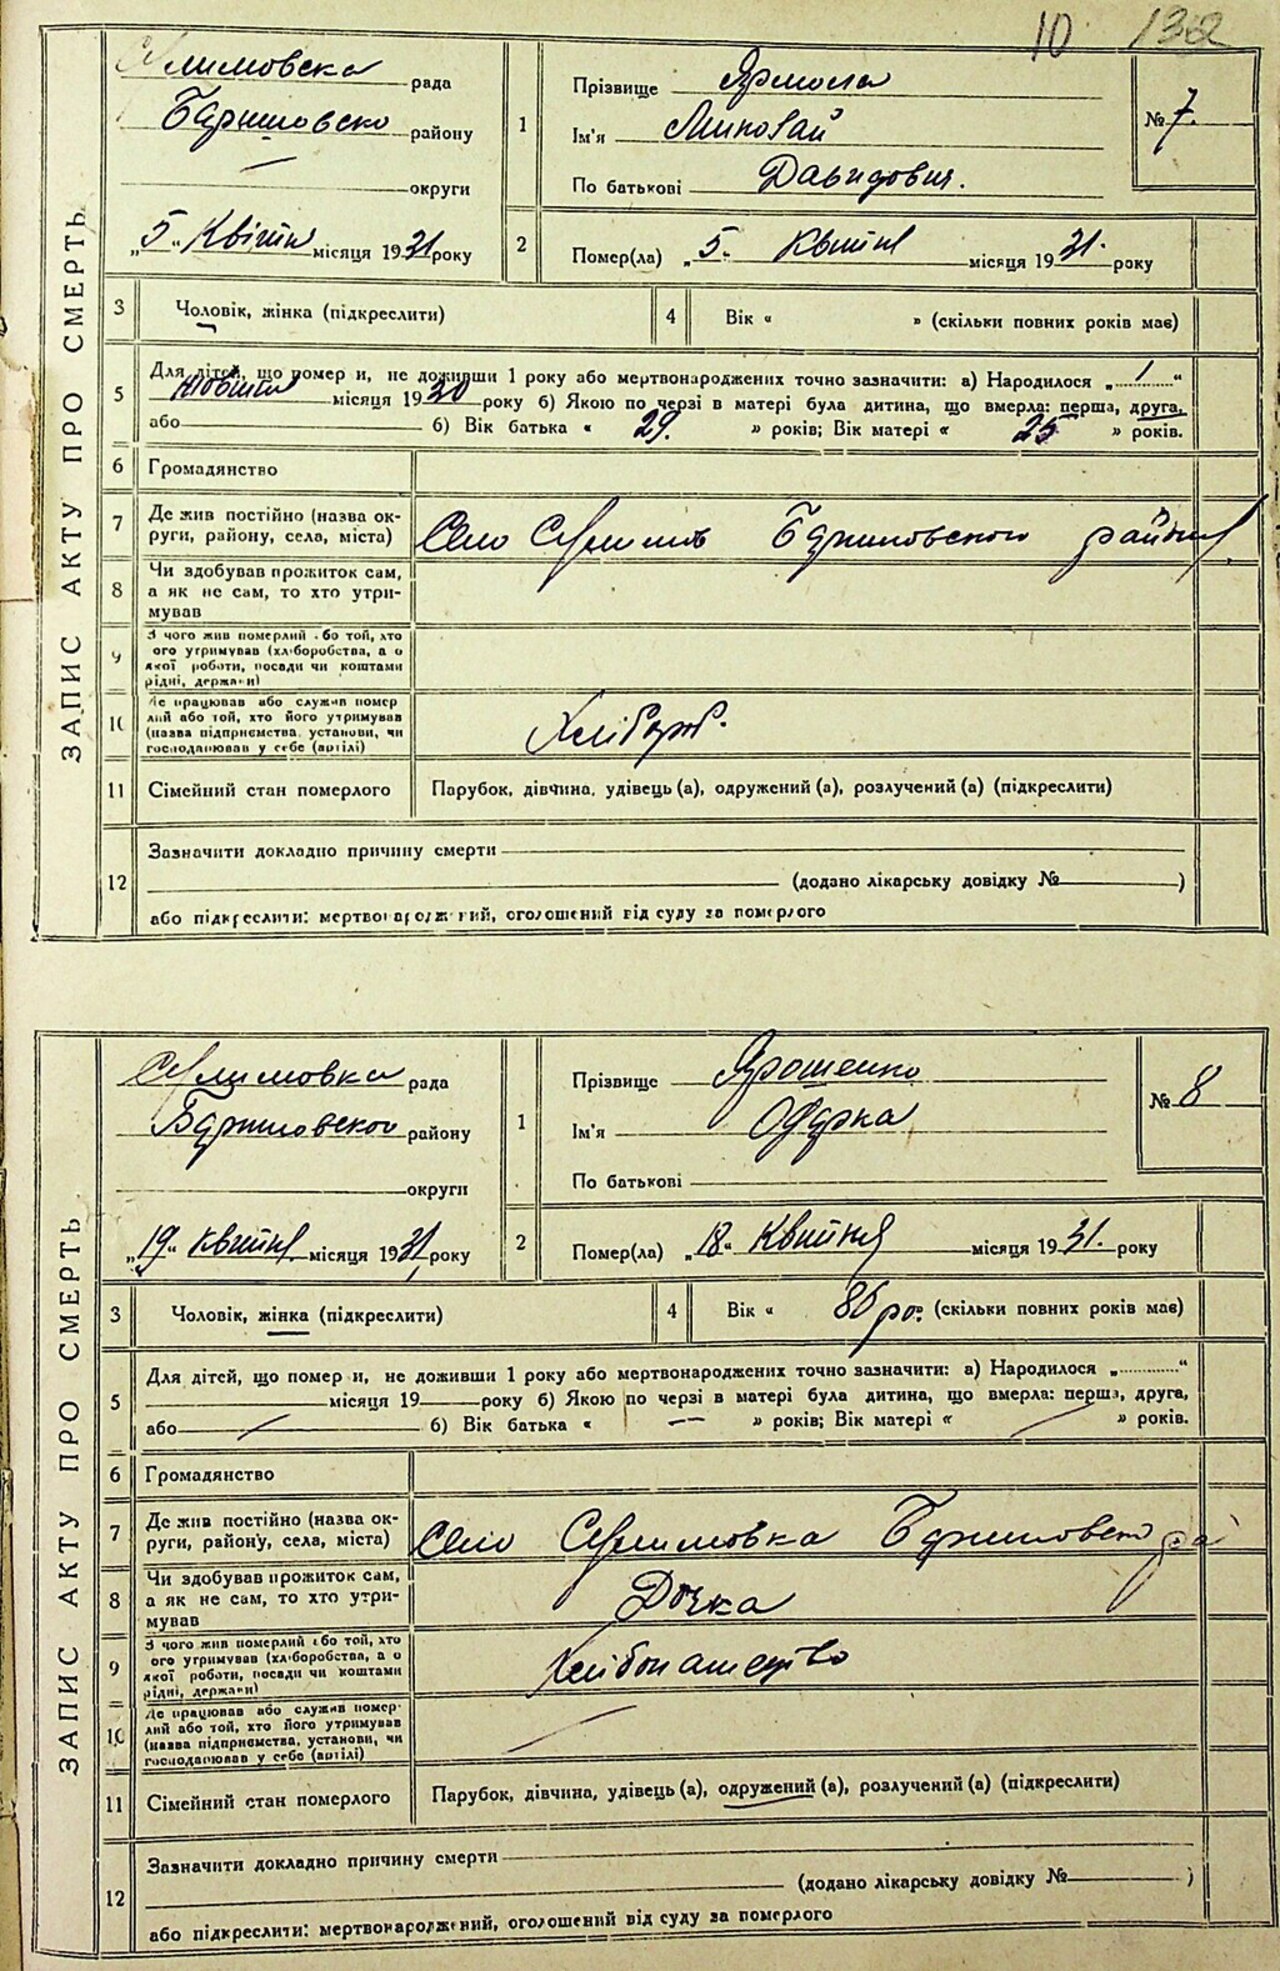 10 132
ЗАПИС АКТУ ПРО СМЕРТЬ
рада
Баришовско району
округи
„5“ Квітня місяця 1931 року
1
Прізвище Ярмола
Ім'я Миколай
По батькові Давидович.
№ 7.
2
Помер(ла) „5. Квитня місяця 1931. року
3 Чоловік, жінка (підкреслити)
4 Вік « » (скільки повних років має)
5 Для дітей, що помер и, не доживши 1 року або мертвонароджених точно зазначити: а) Народилося „1“
Жовтня місяця 1930 року б) Якою по черзі в матері була дитина, що вмерла: перша, друга,
або б) Вік батька « 29. » років; Вік матері « 25 » років.
6 Громадянство
7 Де жив постійно (назва ок-
руги, району, села, міста)
Село Баришовского району
8 Чи здобував прожиток сам,
а як не сам, то хто утри-
мував
9 З чого жив померлий або той, хто
ого утримував (хліборобства, а о
якої роботи, посади чи коштами
рідні, держави)
10 Де працював або служив помер
лий або той, хто його утримував
(назва підприємства, установи, чи
господарював у себе (артілі)
Хлібороб.
11 Сімейний стан померлого
Парубок, дівчина, удівець (а), одружений (а), розлучений (а) (підкреслити)
12 Зазначити докладно причину смерти
(додано лікарську довідку № )
або підкреслити: мертвонароджений, оголошений від суду за померлого
ЗАПИС АКТУ ПРО СМЕРТЬ
рада
Баришовского району
округи
„19“ Квитня місяця 1931 року
1
Прізвище Ярошенко
Ім'я Одарка
По батькові
№ 8
2
Помер(ла) „18“ Квитня місяця 1931. року
3 Чоловік, жінка (підкреслити)
4 Вік « (скільки повних років має)
5 Для дітей, що помер и, не доживши 1 року або мертвонароджених точно зазначити: а) Народилося „ “
місяця 19 року б) Якою по черзі в матері була дитина, що вмерла: перша, друга,
або б) Вік батька « — » років; Вік матері « » років.
6 Громадянство
7 Де жив постійно (назва ок-
руги, району, села, міста)
Село ра
8 Чи здобував прожиток сам,
а як не сам, то хто утри-
мував
Дочка
9 З чого жив померлий або той, хто
ого утримував (хліборобства, а о
якої роботи, посади чи коштами
рідні, держави)
Хлібопашество
10 Де працював або служив помер-
лий або той, хто його утримував
(назва підприємства, установи, чи
господарював у себе (артілі)
11 Сімейний стан померлого
Парубок, дівчина, удівець (а), одружений (а), розлучений (а) (підкреслити)
12 Зазначити докладно причину смерти
(додано лікарську довідку № )
або підкреслити: мертвонароджений, оголошений від суду за померлого